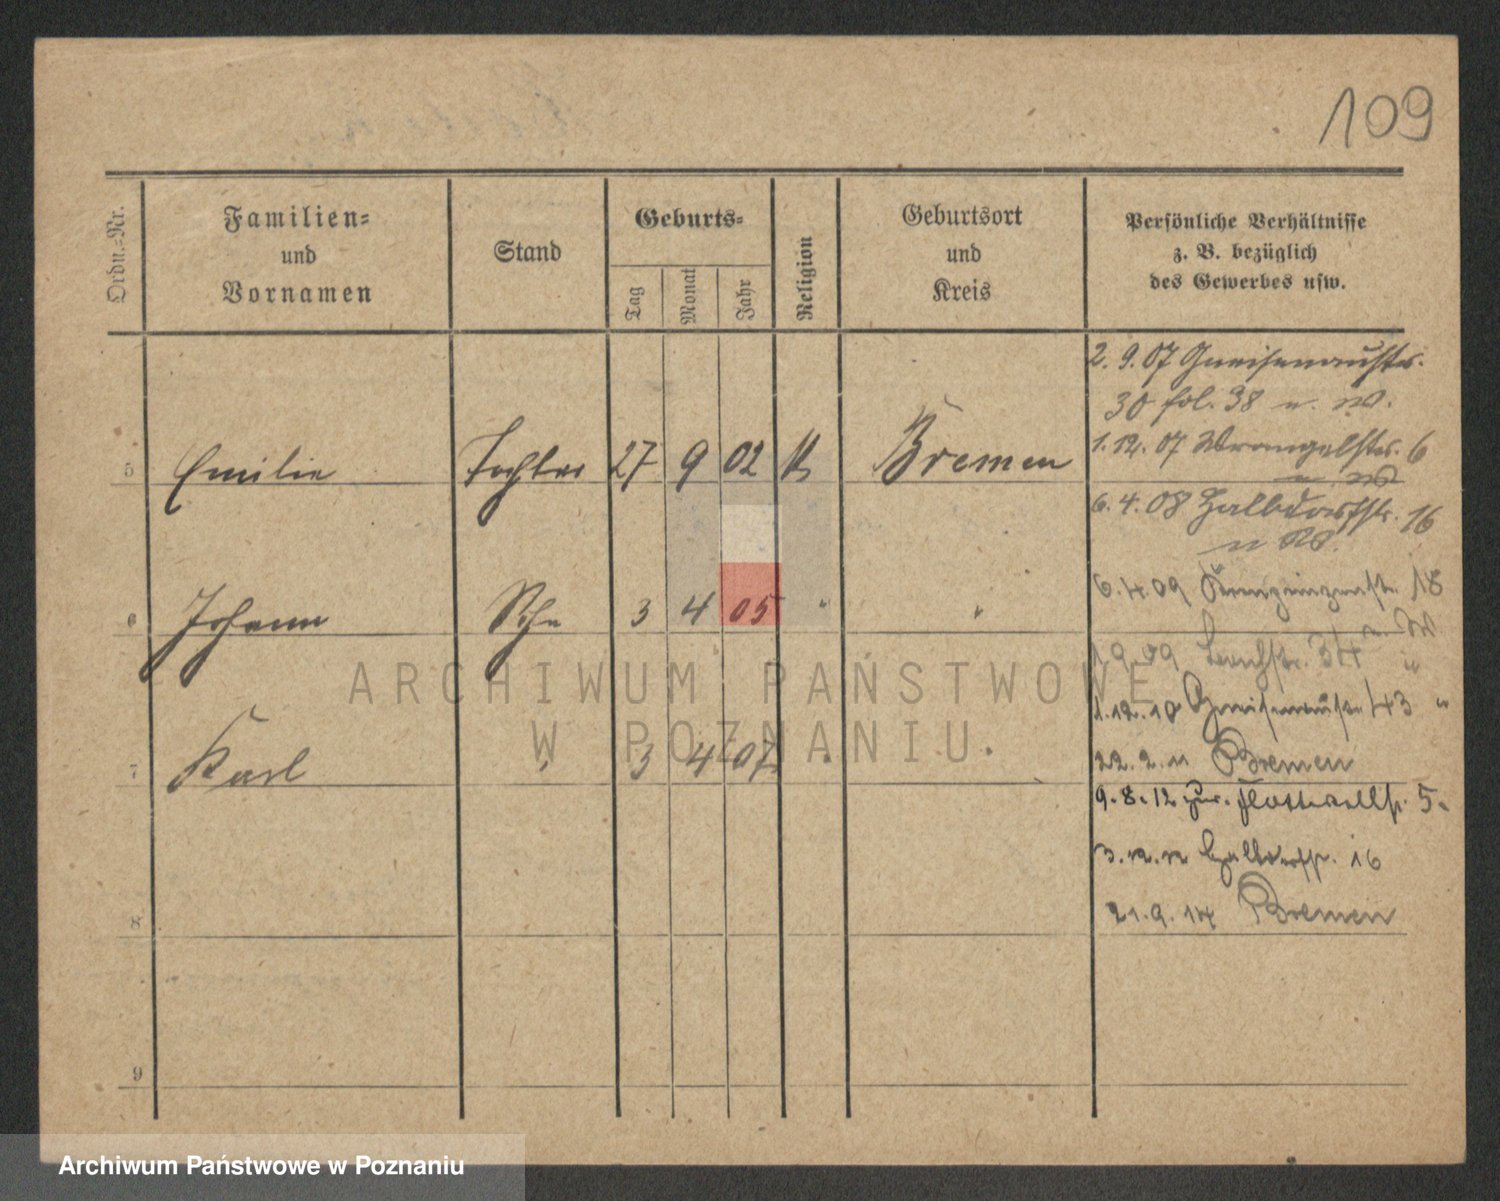 109
Ordn.-Nr.
Familien-
und
Vornamen
Stand
Geburts-
Tag
Monat
Jahr
Religion
Geburtsort
und
Kreis
Persönliche Verhältnisse
z. B. bezüglich
des Gewerbes usw.
2. 9. 07 Gneisenaustr.
30 fol. 38 u. W.
5 Emilie Tochter 27 9 02 Bremen
1. 12. 07 Wrangelstr. 6
u. W
6. 4. 08 Halbdorfstr. 16
u W.
6 Johann Sohn 3 4 05 " "
6. 4. 09 18
u. W
1 9 09 34 "
1. 12. 10 Gneisenaustr 43 "
7 Karl " 3 4 07 "
22. 2. 11 Bremen
9. 8. 12 zur. Flottwellstr. 5.
3. 12. 12 Halbdorfstr. 16
8
21. 9. 14 Bremen
9
ARCHIWUM PAŃSTWOWE
W POZNANIU
Archiwum Państwowe w Poznaniu